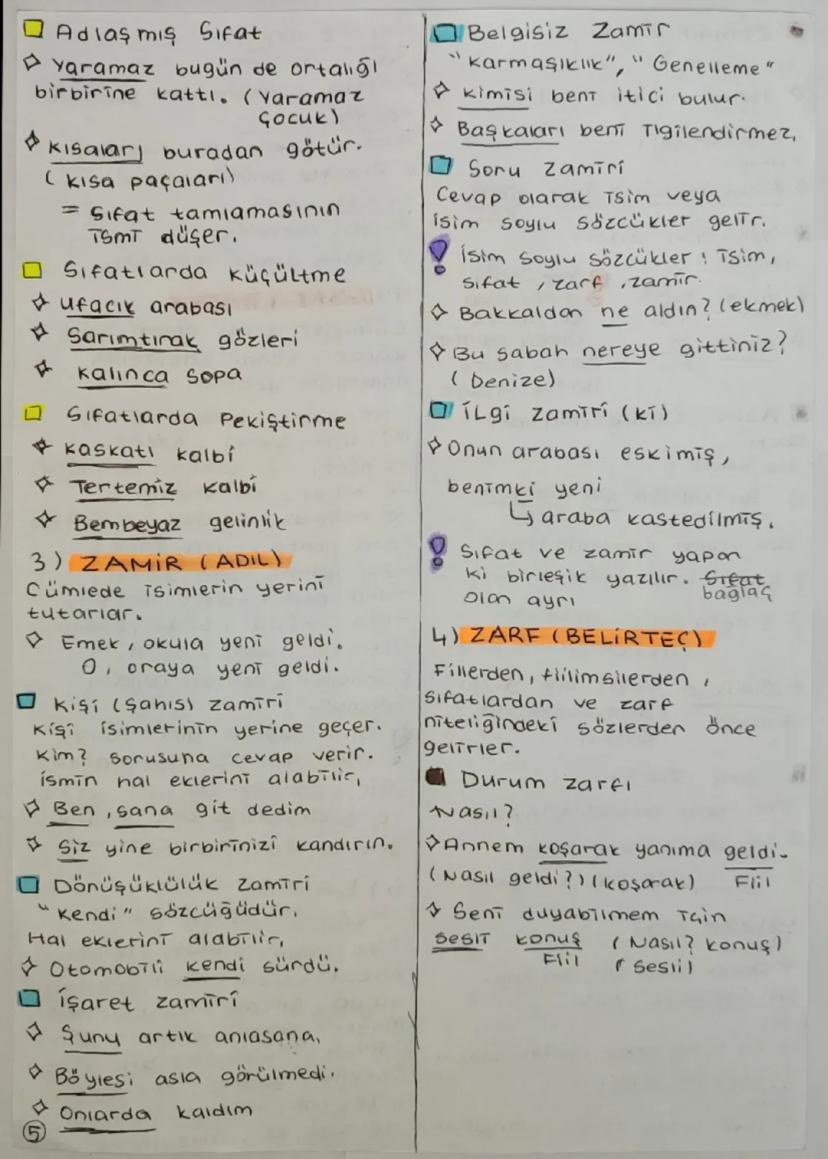 Adlaşmış Sıfat
Yaramaz bugün de ortalığı
birbirine kattı. (Yaramaz
Çocuk)
Kısaları buradan götür.
(Kısa paçaları)
= Sıfat tamlamasının
ismi düşer.
Sıfatlarda Küçültme
Ufacık arabası
Sarımtırak gözleri
Kalınca sopa
Sıfatlarda Pekiştirme
Kaskatı kalbi
Tertemiz kalbi
Bembeyaz gelinlik
3) ZAMİR (ADIL)
Cümlede isimlerin yerini
tutarlar.
Emek, okula yeni geldi.
O, oraya yeni geldi.
Kişi (Şahıs) zamiri
Kişi isimlerinin yerine geçer.
Kim? sorusuna cevap verir.
İsmin hal eklerini alabilir.
Ben, sana git dedim
Siz yine birbirinizi kandırın.
Dönüşüklülük zamiri
"Kendi" sözcüğüdür.
Hal eklerini alabilir.
Otomobili kendi sürdü.
İşaret zamiri
Şunu artık anlasana.
Böylesi asla görülmedi.
Onlarda kaldım
5
Belgisiz Zamir
"Karmaşıklık", "Genelleme"
Kimisi beni itici bulur.
Başkaları beni ilgilendirmez.
Soru zamiri
Cevap olarak isim veya
isim soylu sözcükler gelir.
! İsim soylu sözcükler: isim,
sıfat, zarf, zamir.
Bakkaldan ne aldın? (ekmek)
Bu sabah nereye gittiniz?
(Denize)
İlgi zamiri (ki)
Onun arabası eskimiş,
benimki yeni
↳ araba kastedilmiş.
! Sıfat ve zamir yapan
ki birleşik yazılır. Sıfat
bağlaç
olan ayrı
4) ZARF (BELİRTEÇ)
Fillerden, fiilimsilerden,
sıfatlardan ve zarf
niteliğindeki sözlerden önce
gelirler.
Durum zarfı
Nasıl?
Annem koşarak yanıma geldi.
(Nasıl geldi?) (koşarak) Fiil
Seni duyabilmem için
sesli konuş (Nasıl? konuş)
Fiil (Sesli)